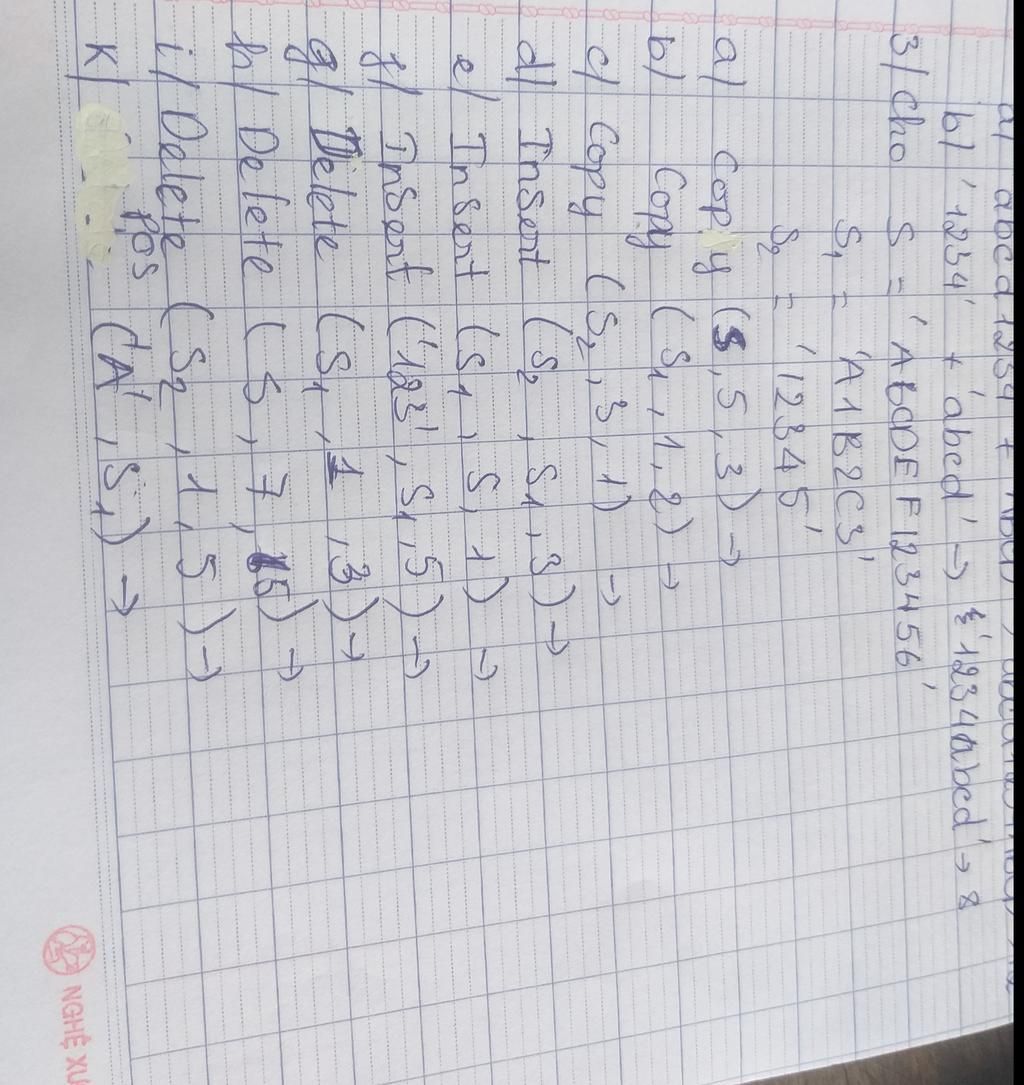 b/ '1234' + 'abcd' → '1234abcd' → 8
3/ Cho S = 'ABCDEF123456'
S₁ = 'A1B2C3'
S₂ = '12345'
a/ Copy (S, 5, 3) →
b/ Copy (S₁, 1, 2) →
c/ Copy (S₂, 3, 1) →
d/ Insert (S₂, S₁, 3) →
e/ Insert (S₁, S, 1) →
f/ Insert ('123', S₁, 5) →
g/ Delete (S₁, 1, 3) →
h/ Delete (S, 7, 5) →
i/ Delete (S₂, 1, 5) →
k/ Pos ('A', S₁) →
NGHỆ XU